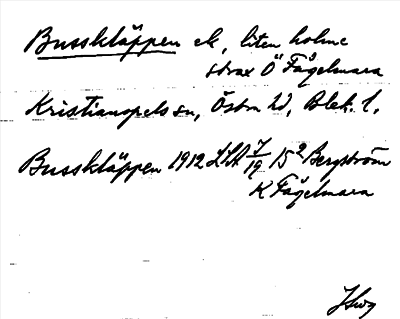 Busskläppen ek, liten holme
strax Ö Fågelmara
Kristianopels sn, Östra hd, Blek. l.
Busskläppen 1912 LSA 7/19 15² Bergström
K Fågelmara